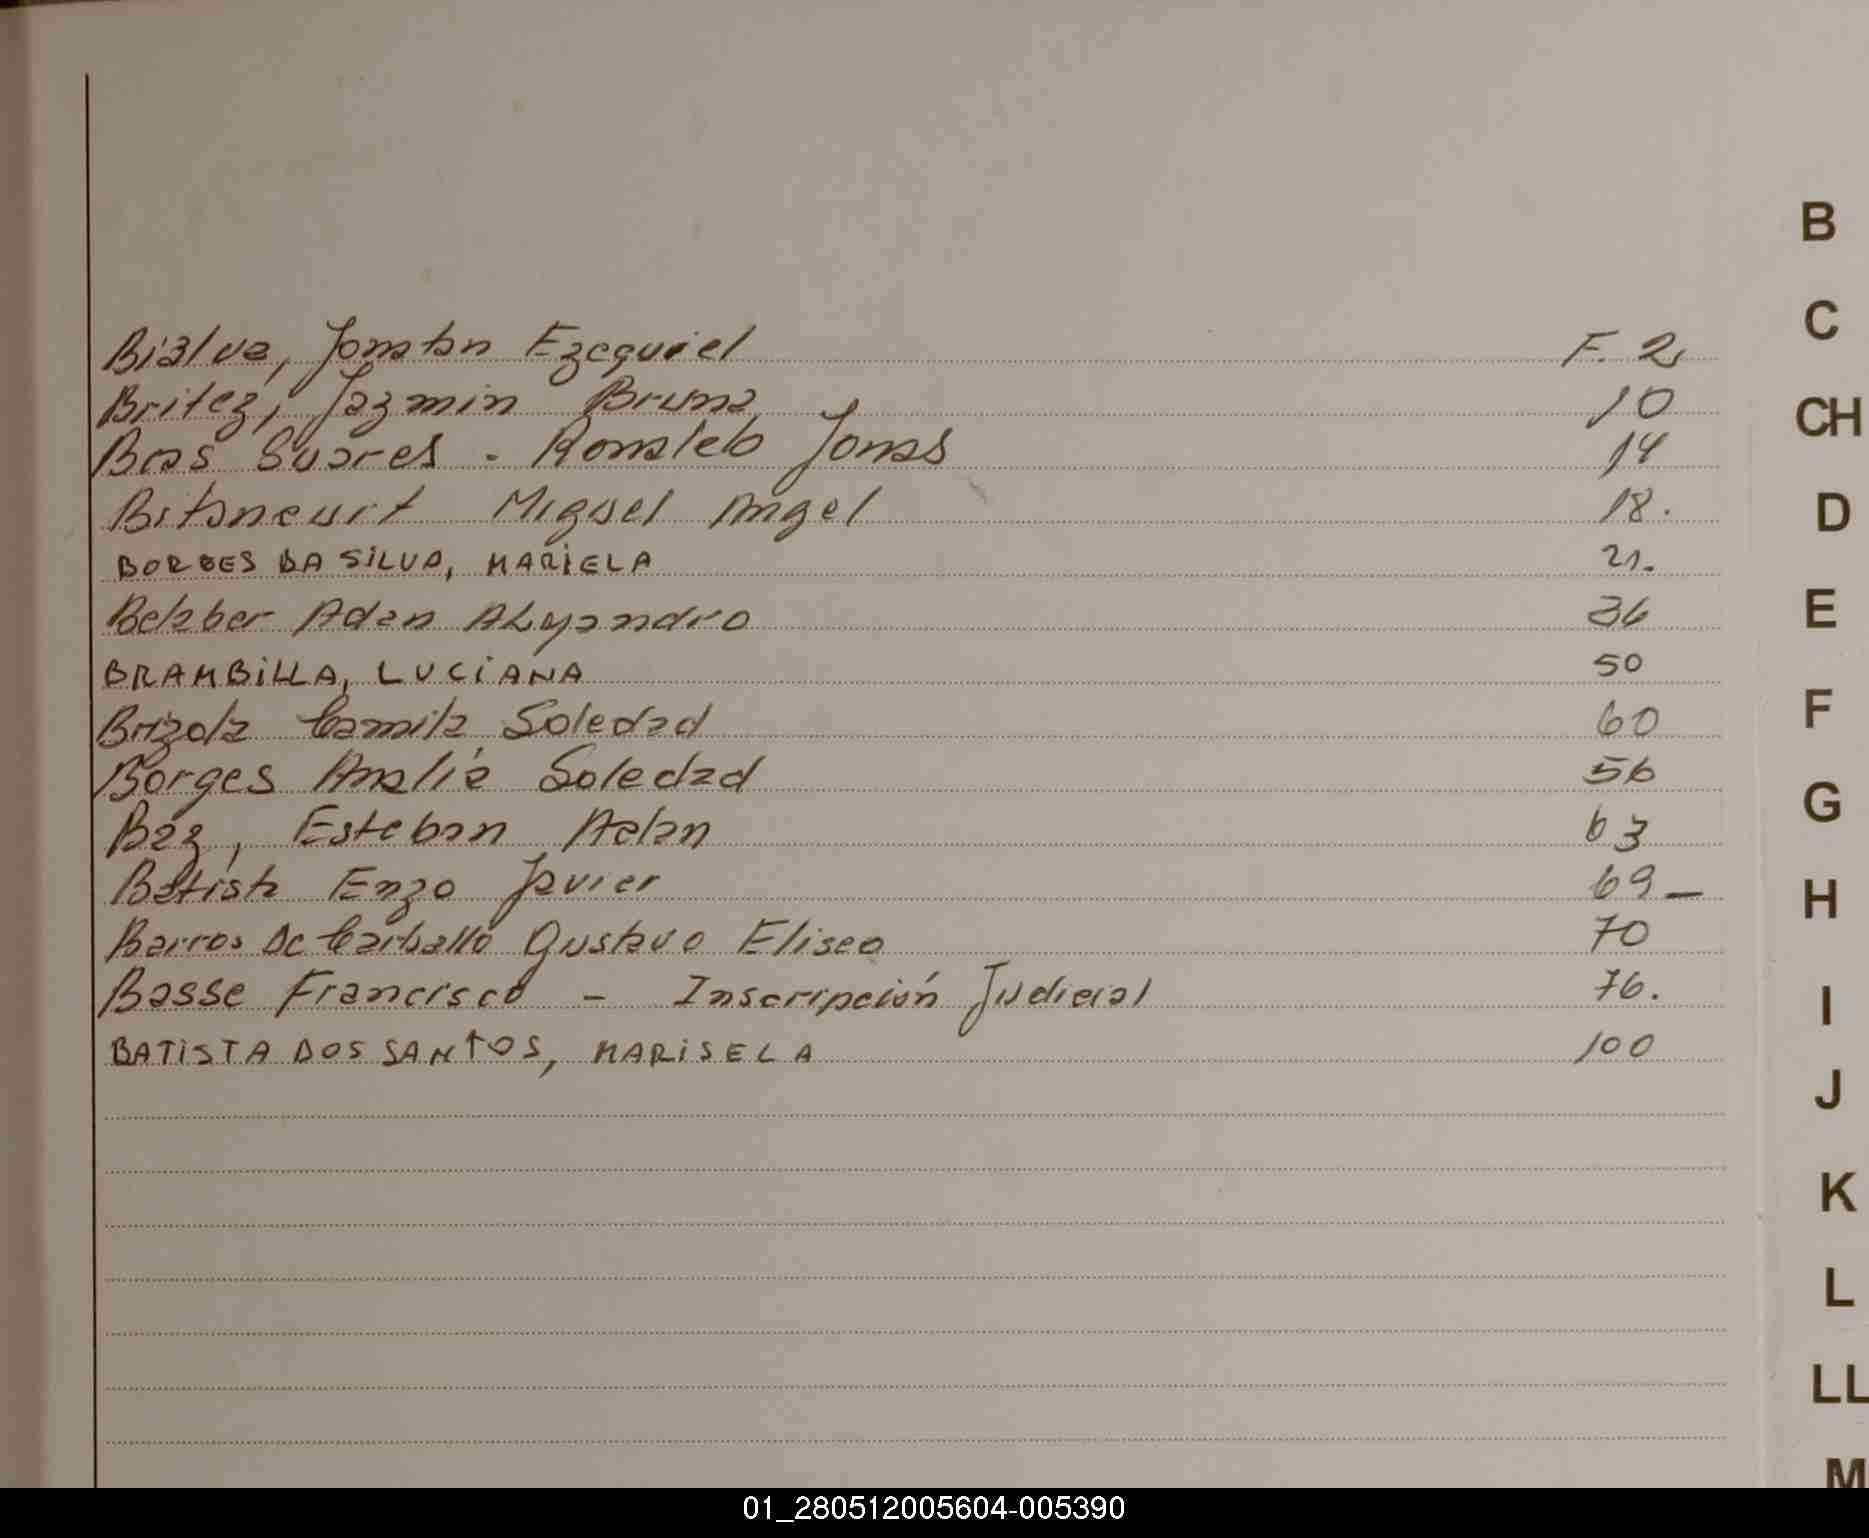 Bialva, Jonatan Ezequiel F. 2
Britez, Jazmin Bruna 10
Bras Suares - Ronaldo Jonas 14
Bitancurt Miguel Angel 18.
BORGES DA SILVA, MARIELA 21.
Belaber Adan Alejandro 36
BRAMBILLA, LUCIANA 50
Brizola Camila Soledad 60
Borges Analía Soledad 56
Baz, Esteban Adan 63
Batista Enzo Javier 69-
Barros De Carballo Gustavo Eliseo 70
Basse Francisco - Inscripción Judicial 76.
BATISTA DOS SANTOS, MARISELA 100
B
C
CH
D
E
F
G
H
I
J
K
L
LL
M
01_280512005604-005390